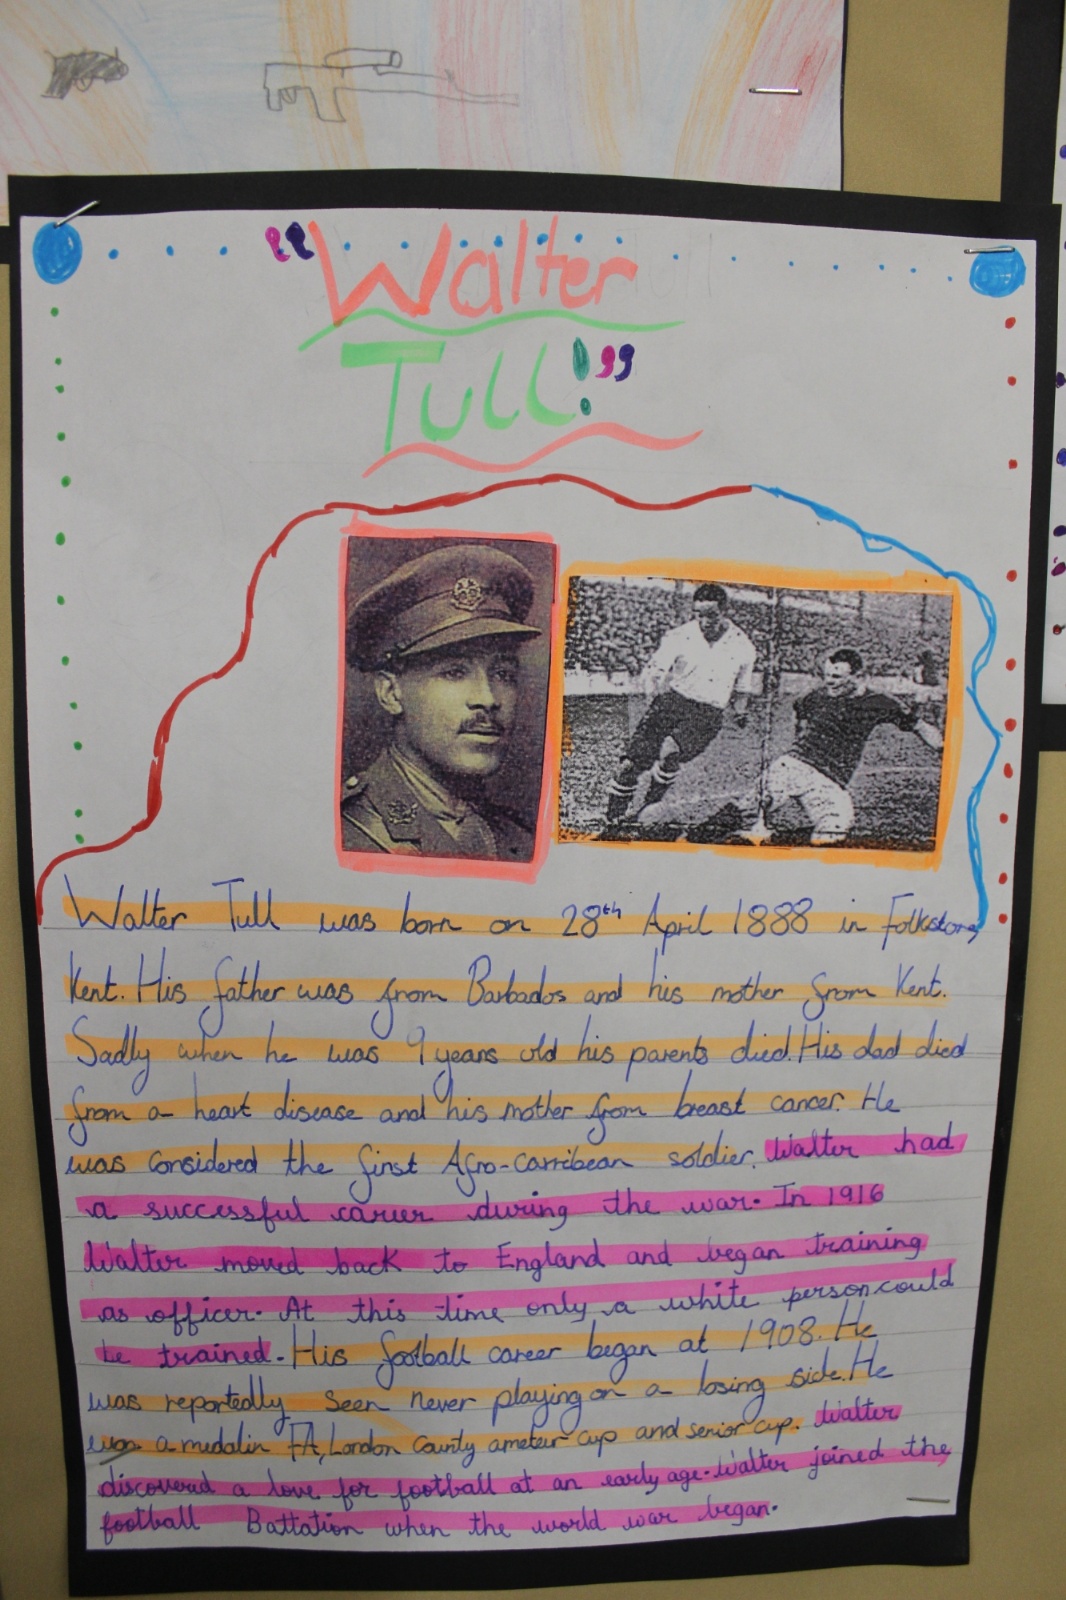 "Walter
Tull!"
Walter Tull was born on 28th April 1888 in Folkstone,
Kent. His father was from Barbados and his mother from Kent.
Sadly when he was 9 years old his parents died. His dad died
from a heart disease and his mother from breast cancer. He
was considered the first Afro-carribean soldier. Walter had
a successful carier during the war. In 1916
Walter moved back to England and began training
as officer. At this time only a white person could
be trained. His football career began at 1908. He
was reportedly seen never playing on a losing side. He
won a medal in FA, London County ameteur cup and senior cup. Walter
discovered a love for football at an early age. Walter joined the
football Battation when the world war began.